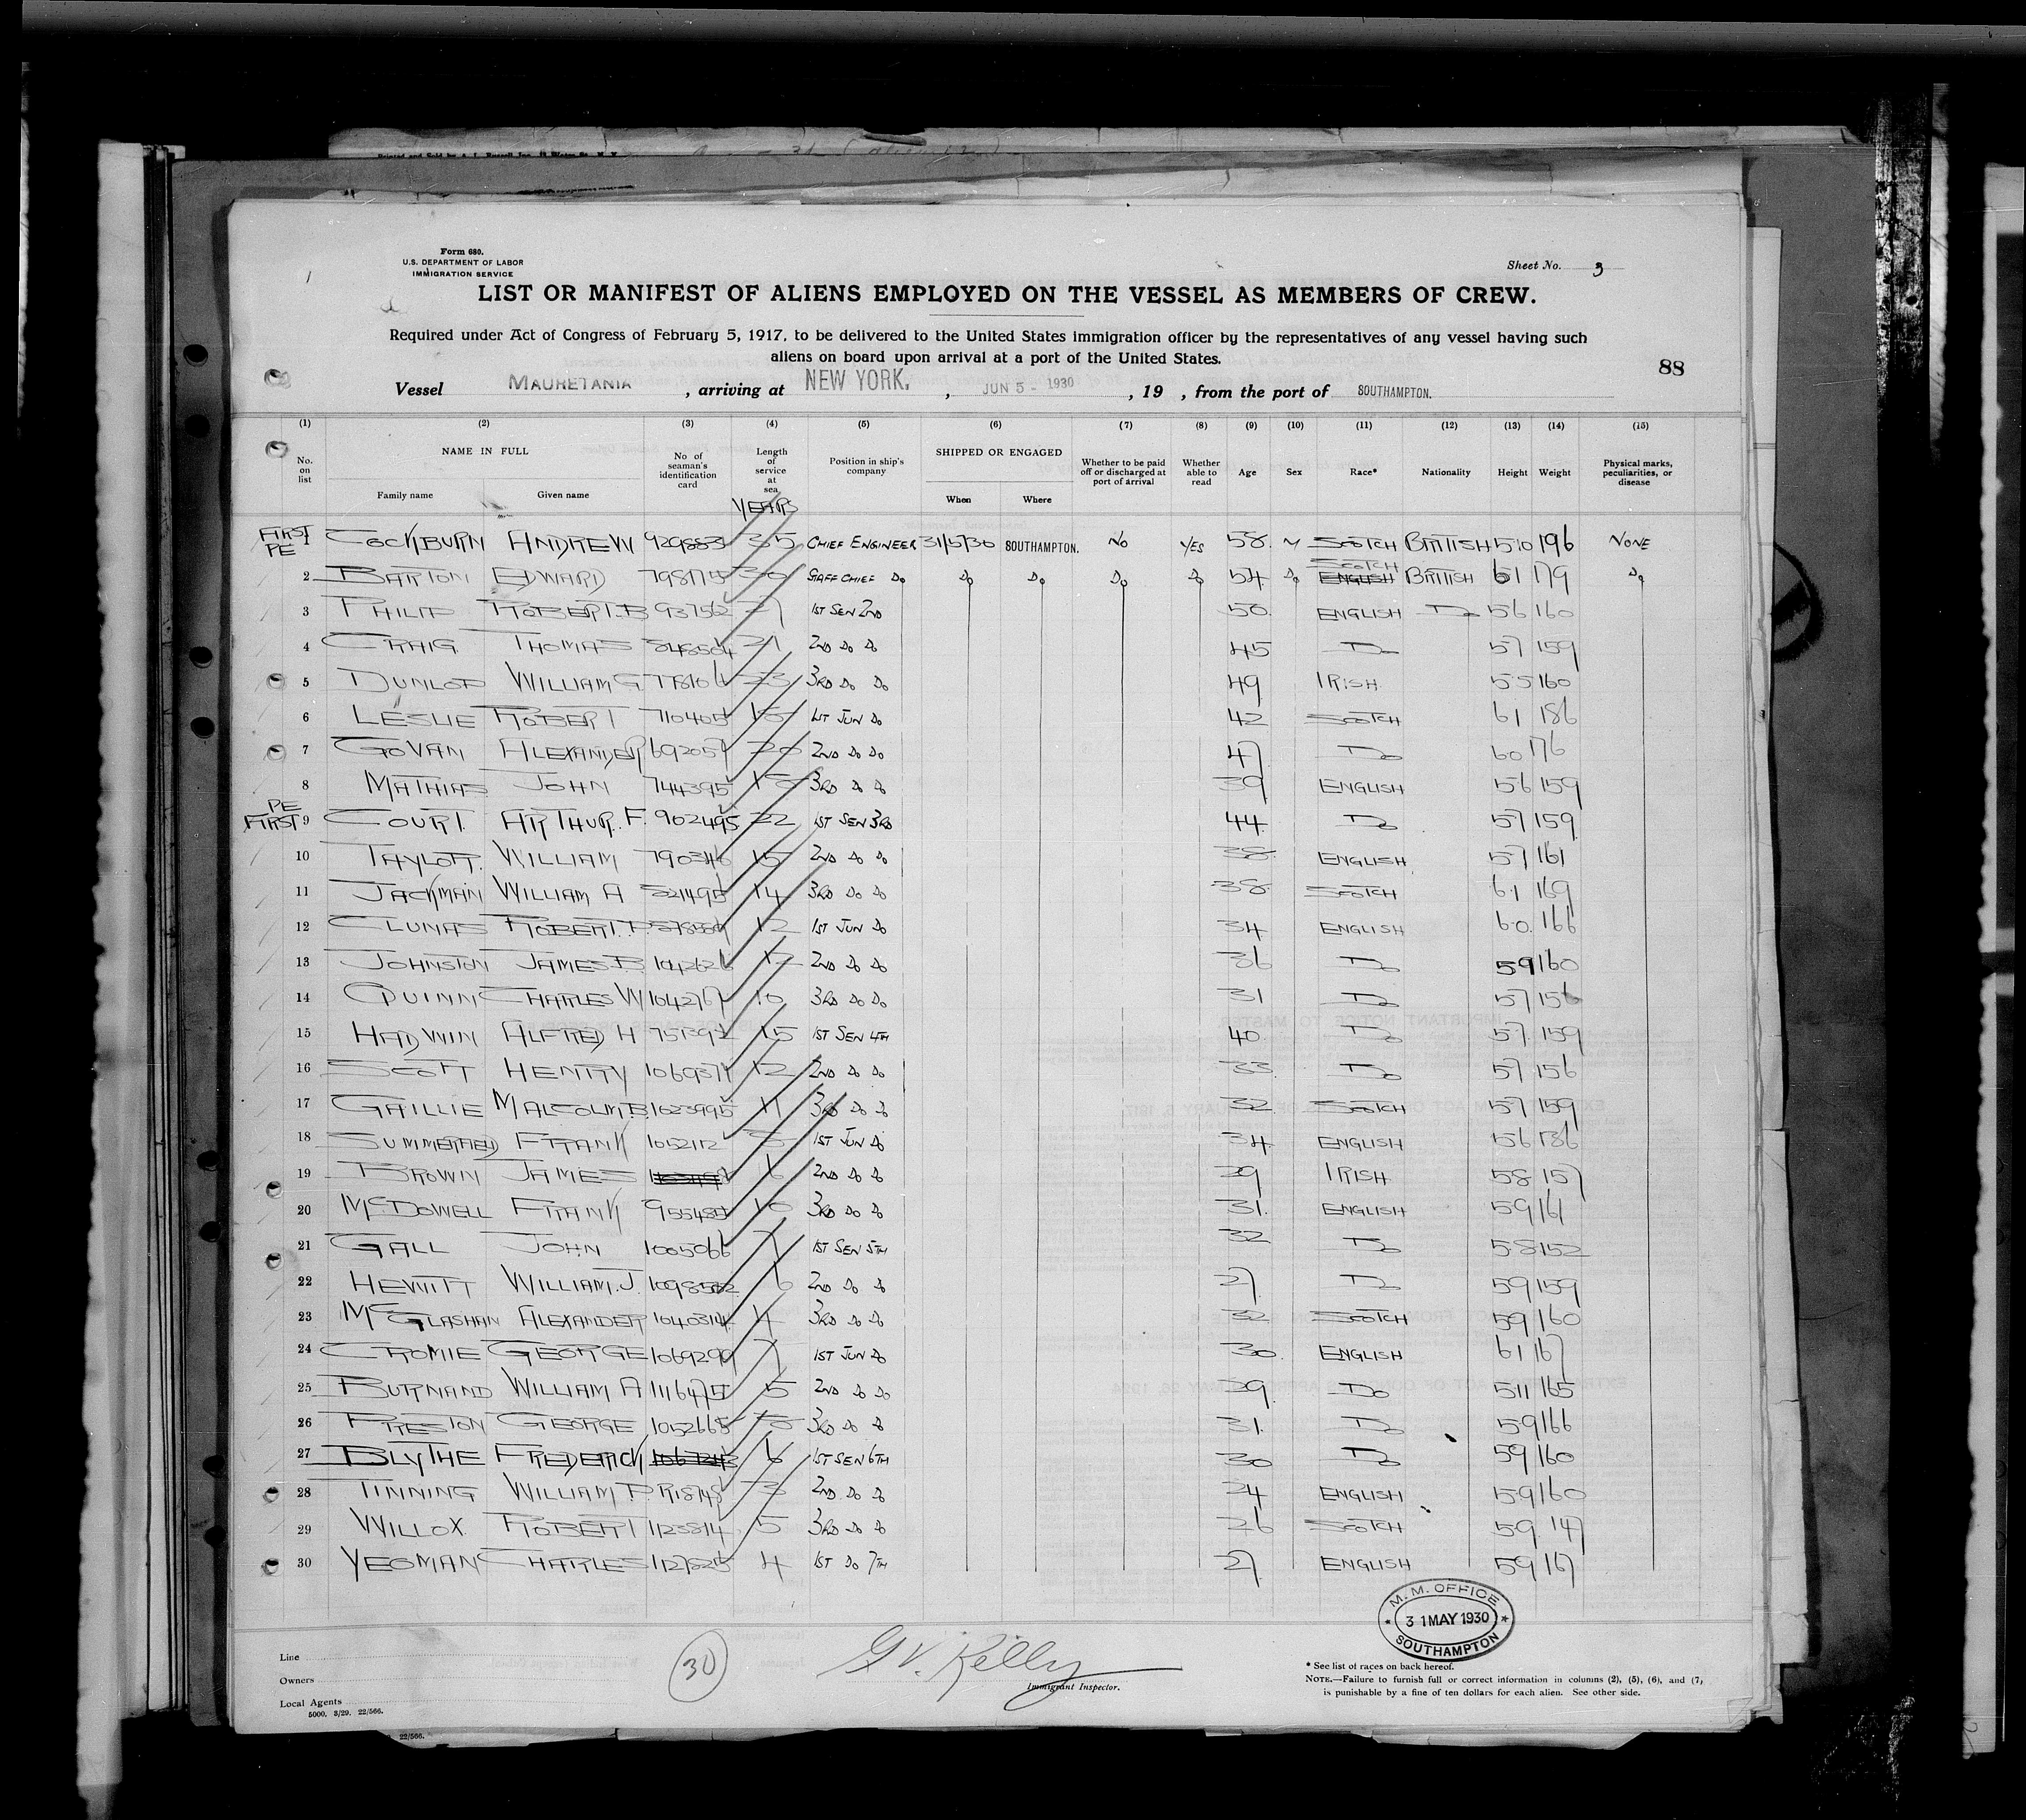 Form 680.
U.S. DEPARTMENT OF LABOR
IMMIGRATION SERVICE
Sheet No. 3
LIST OR MANIFEST OF ALIENS EMPLOYED ON THE VESSEL AS MEMBERS OF CREW.
Required under Act of Congress of February 5, 1917, to be delivered to the United States immigration officer by the representatives of any vessel having such
aliens on board upon arrival at a port of the United States.
88
Vessel MAURETANIA , arriving at NEW YORK. , JUN 5 - 1930 , 19 , from the port of SOUTHAMPTON.
(1) (2) (3) (4) (5) (6) (7) (8) (9) (10) (11) (12) (13) (14) (15)
No. on list NAME IN FULL Family name Given name No. of seaman's identification card Length of service at sea YEARS Position in ship's company SHIPPED OR ENGAGED When Where Whether to be paid off or discharged at port of arrival Whether able to read Age Sex Race* Nationality Height Weight Physical marks, peculiarities, or disease
FIRST PE 1 COCKBURN ANDREW 929883 35 CHIEF ENGINEER 31/5/30 SOUTHAMPTON. NO YES 58 M SCOTCH BRITISH 510 196 NONE
2 BARTON EDWARD 798775 30 STAFF CHIEF Do Do Do Do Do 54 Do ENGLISH SCOTCH BRITISH 61 179 Do
3 PHILIP ROBERT.B 937562 27 1ST SEN 2ND 50 ENGLISH Do 56 160
4 CRAIG THOMAS 21 2ND Do Do 45 Do 57 159
5 DUNLOP WILLIAM G 23 3RD Do Do 49 IRISH 55 160
6 LESLIE ROBERT 710405 1ST JUN Do 42 SCOTCH 61 186
7 GOVAN ALEXANDER 692057 20 2ND Do Do 47 Do 60 176
8 MATHIAS JOHN 744395 3RD Do Do 39 ENGLISH 56 159
PE FIRST 9 COURT ARTHUR.F. 902495 22 1ST SEN 3RD 44 Do 57 159
10 TAYLOR. WILLIAM 790346 15 2ND Do Do 38 ENGLISH 57 161
11 JACKMAN WILLIAM A 14 3RD Do Do 38 SCOTCH 61 169
12 CLUNAS ROBERT.P 12 1ST JUN Do 34 ENGLISH 60 166
13 JOHNSTON JAMES.B 1042626 12 2ND Do Do 36 Do 59 160
14 QUINN CHARLES W 1042767 10 3RD Do Do 31 Do 57 156
15 HADWIN ALFRED H 15 1ST SEN 4TH 40 Do 57 159
16 SCOTT HENRY 1069371 12 2ND Do Do 33 Do 57 156
17 GAILLIE MALCOLM.B 1023995 11 3RD Do Do 32 SCOTCH 57 159
18 SUMMERFIELD FRANK 1052112 1ST JUN Do 34 ENGLISH 56 186
19 BROWN JAMES 6 2ND Do Do 29 IRISH 58 157
20 McDOWELL FRANK 10 3RD Do Do 31 ENGLISH 59 161
21 GALL JOHN 1005066 7 1ST SEN 5TH 32 Do 58 152
22 HEWITT WILLIAM.J. 6 2ND Do Do 27 Do 59 159
23 McGLASHAN ALEXANDER 1040314 4 3RD Do Do 32 SCOTCH 59 160
24 CROMIE GEORGE 1069299 7 1ST JUN Do 30 ENGLISH 61 167
25 BURNAND WILLIAM A 1116475 5 2ND Do Do 29 Do 511 165
26 PRESTON GEORGE 1052665 3RD Do Do 31 Do 59 166
27 BLYTHE FREDERICK 6 1ST SEN 6TH 30 Do 59 160
28 TINNING WILLIAM.P. R18748 3 2ND Do Do 24 ENGLISH 59 160
29 WILLOX ROBERT 1123814 5 3RD Do Do 26 SCOTCH 59 147
30 YEOMAN CHARLES 1127825 4 1ST Do 7TH 27 ENGLISH 59 167
M. M. OFFICE
31 MAY 1930
SOUTHAMPTON
Line
Owners
Local Agents
5000. 3/29. 22/566.
30
G V. Kelly
Immigrant Inspector.
* See list of races on back hereof.
NOTE.—Failure to furnish full or correct information in columns (2), (5), (6), and (7,
is punishable by a fine of ten dollars for each alien. See other side.
22/566.